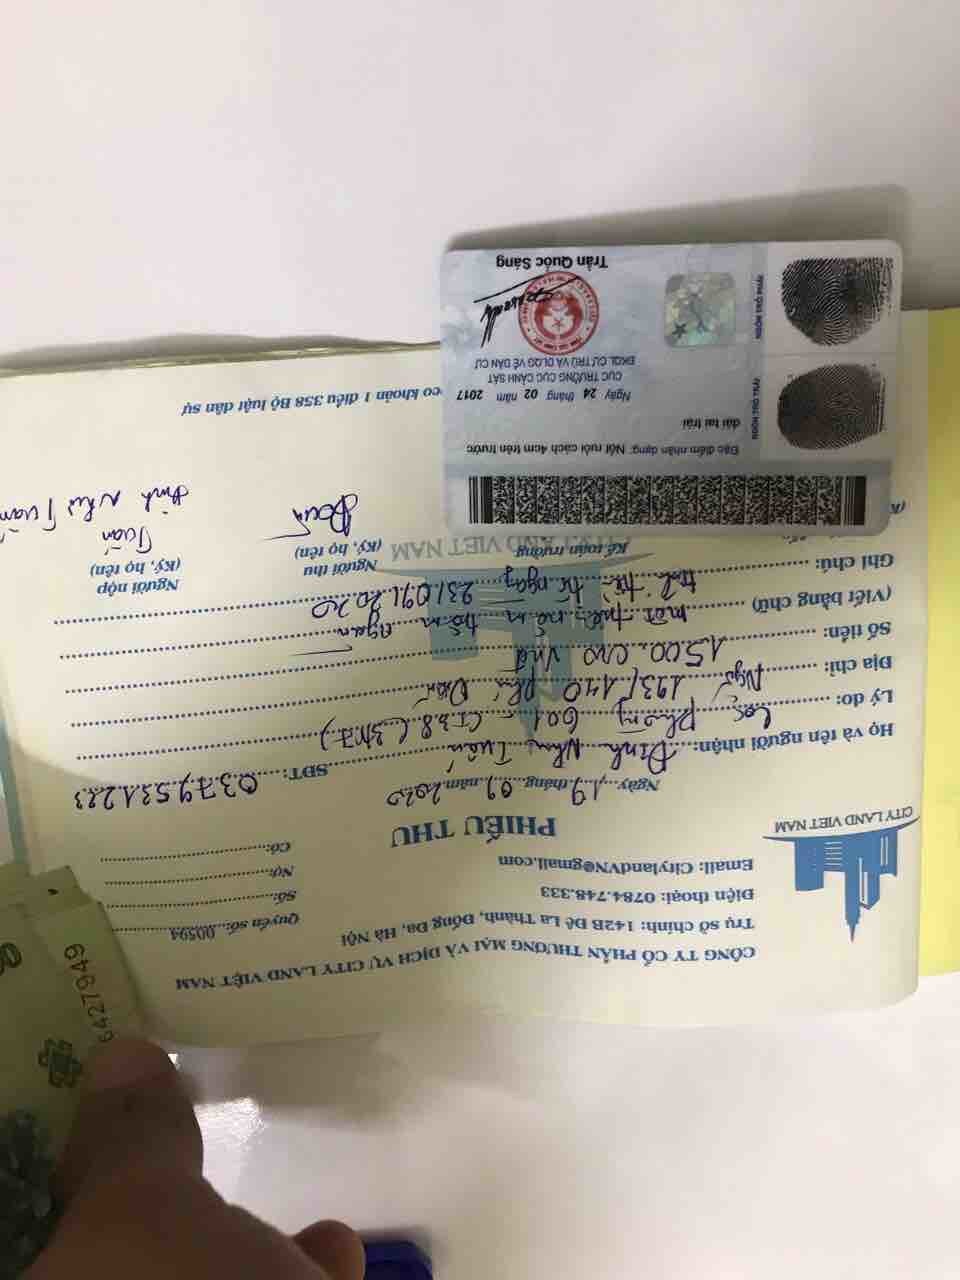 CÔNG TY CỔ PHẦN THƯƠNG MẠI VÀ DỊCH VỤ CITY LAND VIỆT NAM
Trụ sở chính: 142B Đê La Thành, Đống Đa, Hà Nội
Điện thoại: 0784.748.333
Email: CitylandVN@gmail.com
CITY LAND VIET NAM
Quyển số: 00594
Số:
Nợ:
Có:
PHIẾU THU
Ngày 19 tháng 09 năm 2020
Họ và tên người nhận: Đinh Như Tuấn SĐT: 0379531223
Lý do: Cọc phòng 601 - CT38 (3tr7)
Địa chỉ: Ngõ 193/140 Phú Diễn
Số tiền: 1500.000 vnđ
(Viết bằng chữ) một triệu năm trăm ngàn
Ghi chú: tính từ ngày 23/09/2020
CITY LAND VIET NAM
Kế toán trưởng
Người thu
(Ký, họ tên)
Người nộp
(Ký, họ tên)
Tuấn
Đinh Như Tuấn
eo khoản 1 điều 358 Bộ luật dân sự
Đặc điểm nhân dạng: Nốt ruồi cách 4cm trên trước
dái tai trái
Ngày 24 tháng 02 năm 2017
CỤC TRƯỞNG CỤC CẢNH SÁT
ĐKQL CƯ TRÚ VÀ DLQG VỀ DÂN CƯ
Trần Quốc Sáng
NGÓN TRỎ TRÁI
NGÓN TRỎ PHẢI
6427949